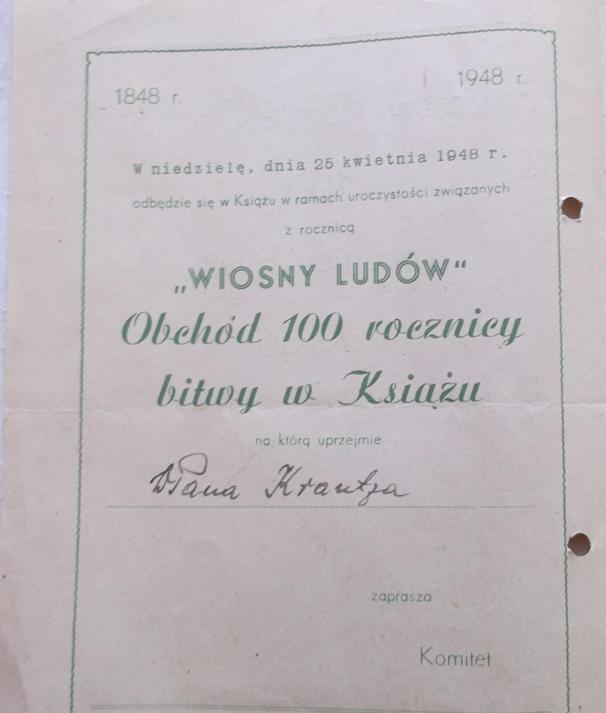 1848 r.
1948 r.
W niedzielę, dnia 25 kwietnia 1948 r.
odbędzie się w Książu w ramach uroczystości związanych
z rocznicą
„WIOSNY LUDÓW“
Obchód 100 rocznicy
bitwy w Książu
na którą uprzejmie
Pana Krantza
zaprasza
Komitet